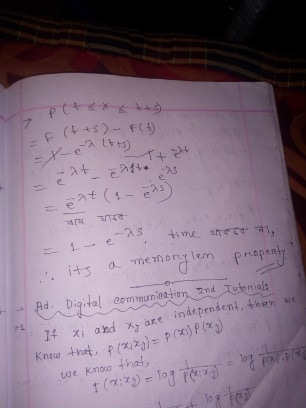 → P(t ≤ X ≤ t+s)
= F(t+s) - F(t)
= 1 - e^-λ(t+s) - 1 + e^-λt
= e^-λt - e^-λt . e^-λs
= e^-λt (1 - e^-λs)
বাদ যাবে
= 1 - e^-λs, time থাকবে না,
∴ its a memorylen property
Ad. Digital communication 2nd Tutorials
If xi and xj are independent, then we
know that, P(xi xj) = P(xi) P(xj)
we know that,
I(xi xj) = log 1/P(xi xj) = log 1/P(xi) P(xj)